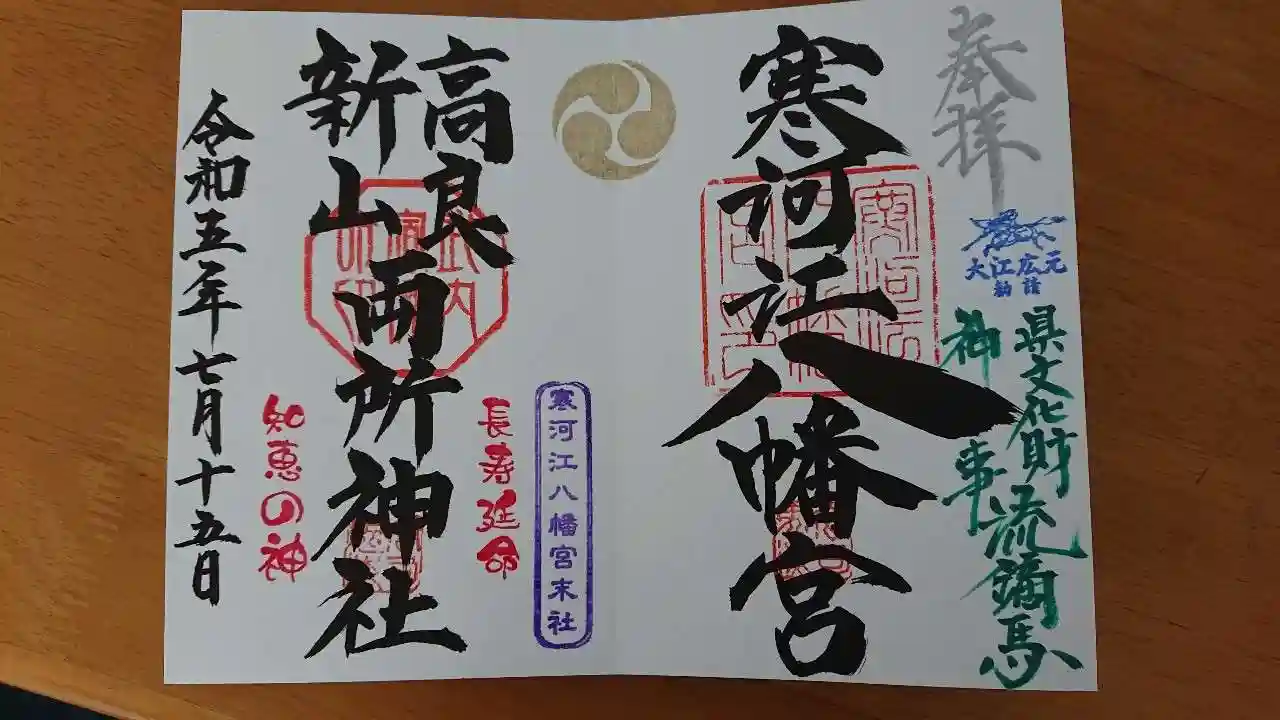 奉拝
大江広元
勧請
県文化財流鏑馬
御神事
寒河江八幡宮
寒河江八幡宮末社
長寿延命
高良
新山
両所神社
知恵の神
令和五年七月十五日